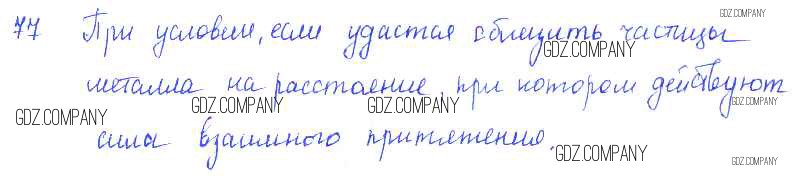 77 При условии, если удастся сблизить частицы
металла на расстояние, при котором действуют
сила взаимного притяжения.
GDZ.COMPANY
GDZ.COMPANY
GDZ.COMPANY
GDZ.COMPANY
GDZ.COMPANY
GDZ.COMPANY
GDZ.COMPANY
GDZ.COMPANY